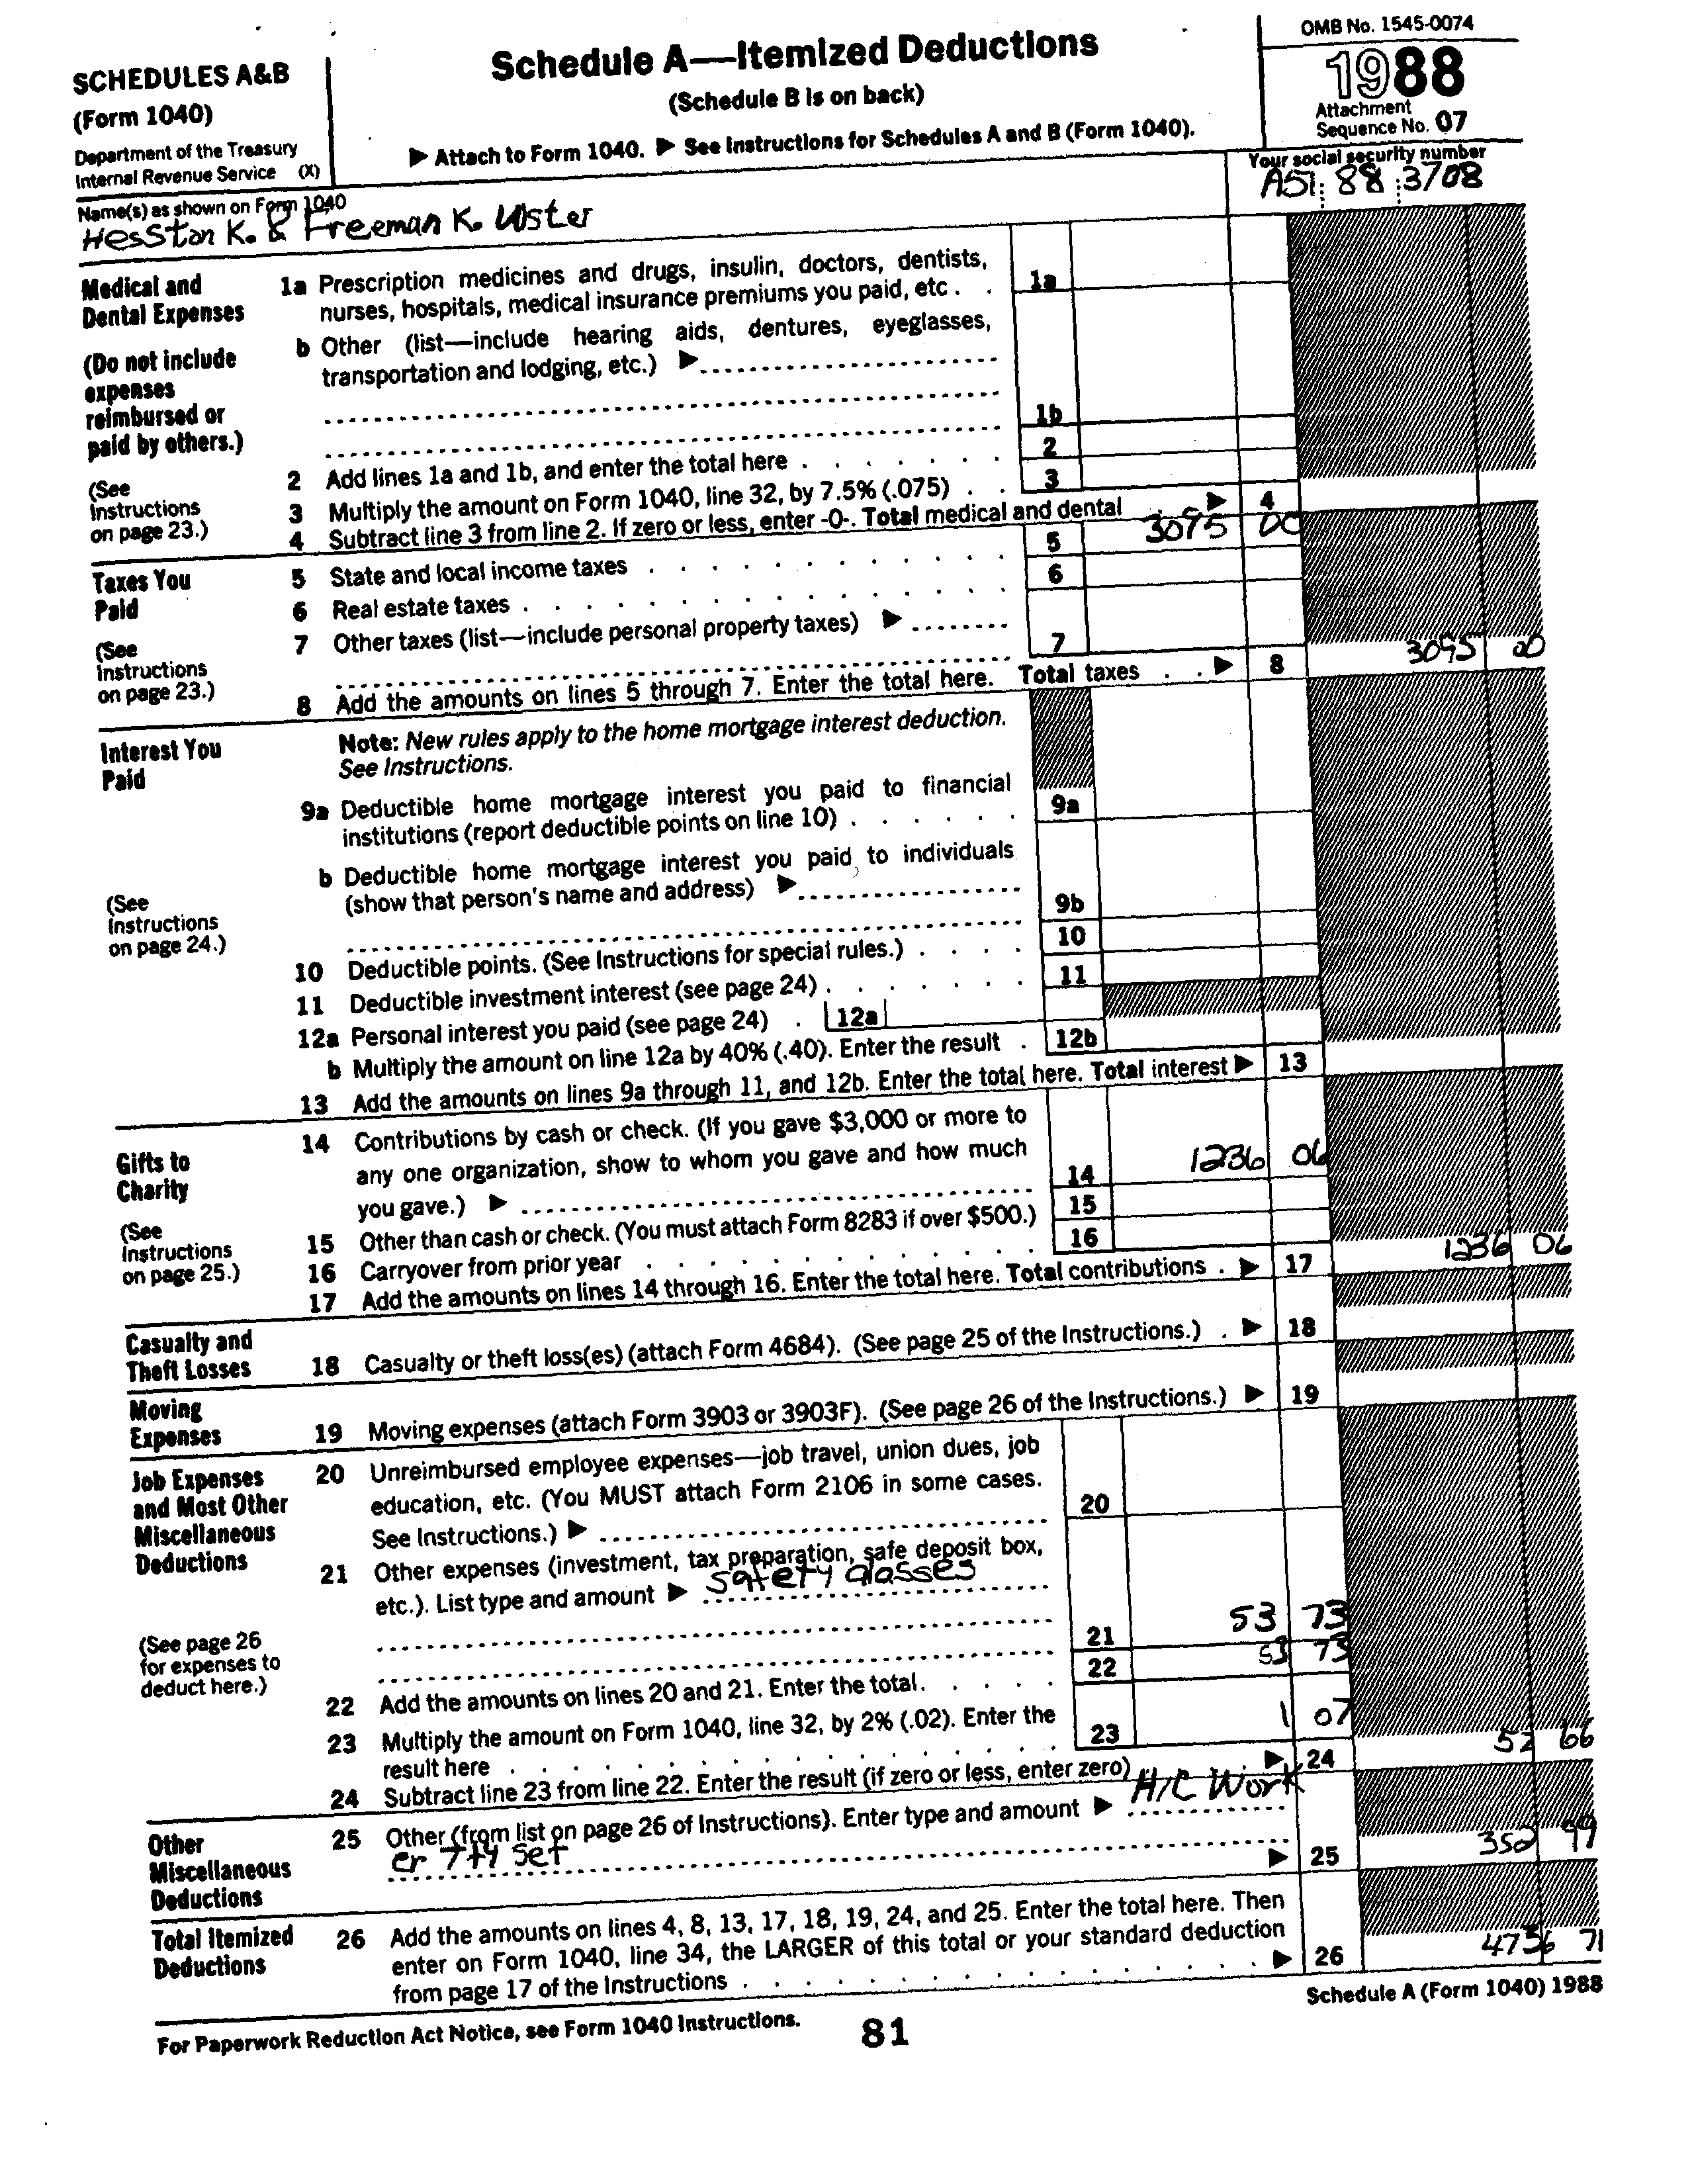 SCHEDULES A&B
(Form 1040)
Department of the Treasury
Internal Revenue Service (X)
Schedule A—Itemized Deductions
(Schedule B is on back)
▶ Attach to Form 1040. ▶ See Instructions for Schedules A and B (Form 1040).
OMB No. 1545-0074
1988
Attachment
Sequence No. 07
Name(s) as shown on Form 1040
Hesston K. & Freeman K. Ulster
Your social security number
A51 88 3708
Medical and
Dental Expenses
(Do not include
expenses
reimbursed or
paid by others.)
(See
Instructions
on page 23.)
1a Prescription medicines and drugs, insulin, doctors, dentists,
nurses, hospitals, medical insurance premiums you paid, etc . . 1a
b Other (list—include hearing aids, dentures, eyeglasses,
transportation and lodging, etc.) ▶
1b
2 Add lines 1a and 1b, and enter the total here . . . . . . . 2
3 Multiply the amount on Form 1040, line 32, by 7.5% (.075) . . 3
4 Subtract line 3 from line 2. If zero or less, enter -0-. Total medical and dental . ▶ 4
Taxes You
Paid
(See
Instructions
on page 23.)
5 State and local income taxes . . . . . . . . . . . 5 3095 00
6 Real estate taxes . . . . . . . . . . . . . . . 6
7 Other taxes (list—include personal property taxes) ▶
7
8 Add the amounts on lines 5 through 7. Enter the total here. Total taxes . . ▶ 8 3095 00
Interest You
Paid
(See
Instructions
on page 24.)
Note: New rules apply to the home mortgage interest deduction.
See Instructions.
9a Deductible home mortgage interest you paid to financial
institutions (report deductible points on line 10) . . . . . . 9a
b Deductible home mortgage interest you paid to individuals
(show that person's name and address) ▶
9b
10 Deductible points. (See Instructions for special rules.) . . . . 10
11 Deductible investment interest (see page 24) . . . . . . . 11
12a Personal interest you paid (see page 24) . 12a
b Multiply the amount on line 12a by 40% (.40). Enter the result . 12b
13 Add the amounts on lines 9a through 11, and 12b. Enter the total here. Total interest ▶ 13
Gifts to
Charity
(See
Instructions
on page 25.)
14 Contributions by cash or check. (If you gave $3,000 or more to
any one organization, show to whom you gave and how much
you gave.) ▶ 14 1236 06
15 Other than cash or check. (You must attach Form 8283 if over $500.) 15
16 Carryover from prior year . . . . . . . . . . . 16
17 Add the amounts on lines 14 through 16. Enter the total here. Total contributions . ▶ 17 1236 06
Casualty and
Theft Losses
18 Casualty or theft loss(es) (attach Form 4684). (See page 25 of the Instructions.) . ▶ 18
Moving
Expenses
19 Moving expenses (attach Form 3903 or 3903F). (See page 26 of the Instructions.) ▶ 19
Job Expenses
and Most Other
Miscellaneous
Deductions
(See page 26
for expenses to
deduct here.)
20 Unreimbursed employee expenses—job travel, union dues, job
education, etc. (You MUST attach Form 2106 in some cases.
See Instructions.) ▶ 20
21 Other expenses (investment, tax preparation, safe deposit box,
etc.). List type and amount ▶ Safety Glasses
21 53 73
22 Add the amounts on lines 20 and 21. Enter the total. . . . . 22 53 73
23 Multiply the amount on Form 1040, line 32, by 2% (.02). Enter the
result here . . . . . . . . . . . . . . . 23 1 07
24 Subtract line 23 from line 22. Enter the result (if zero or less, enter zero) . . ▶ 24 52 66
Other
Miscellaneous
Deductions
25 Other (from list on page 26 of Instructions). Enter type and amount ▶ H/C Work
er 7ty Set ▶ 25 352 99
Total Itemized
Deductions
26 Add the amounts on lines 4, 8, 13, 17, 18, 19, 24, and 25. Enter the total here. Then
enter on Form 1040, line 34, the LARGER of this total or your standard deduction
from page 17 of the Instructions . . . . . . . . . . . . . . . ▶ 26 4736 71
For Paperwork Reduction Act Notice, see Form 1040 Instructions.
81
Schedule A (Form 1040) 1988